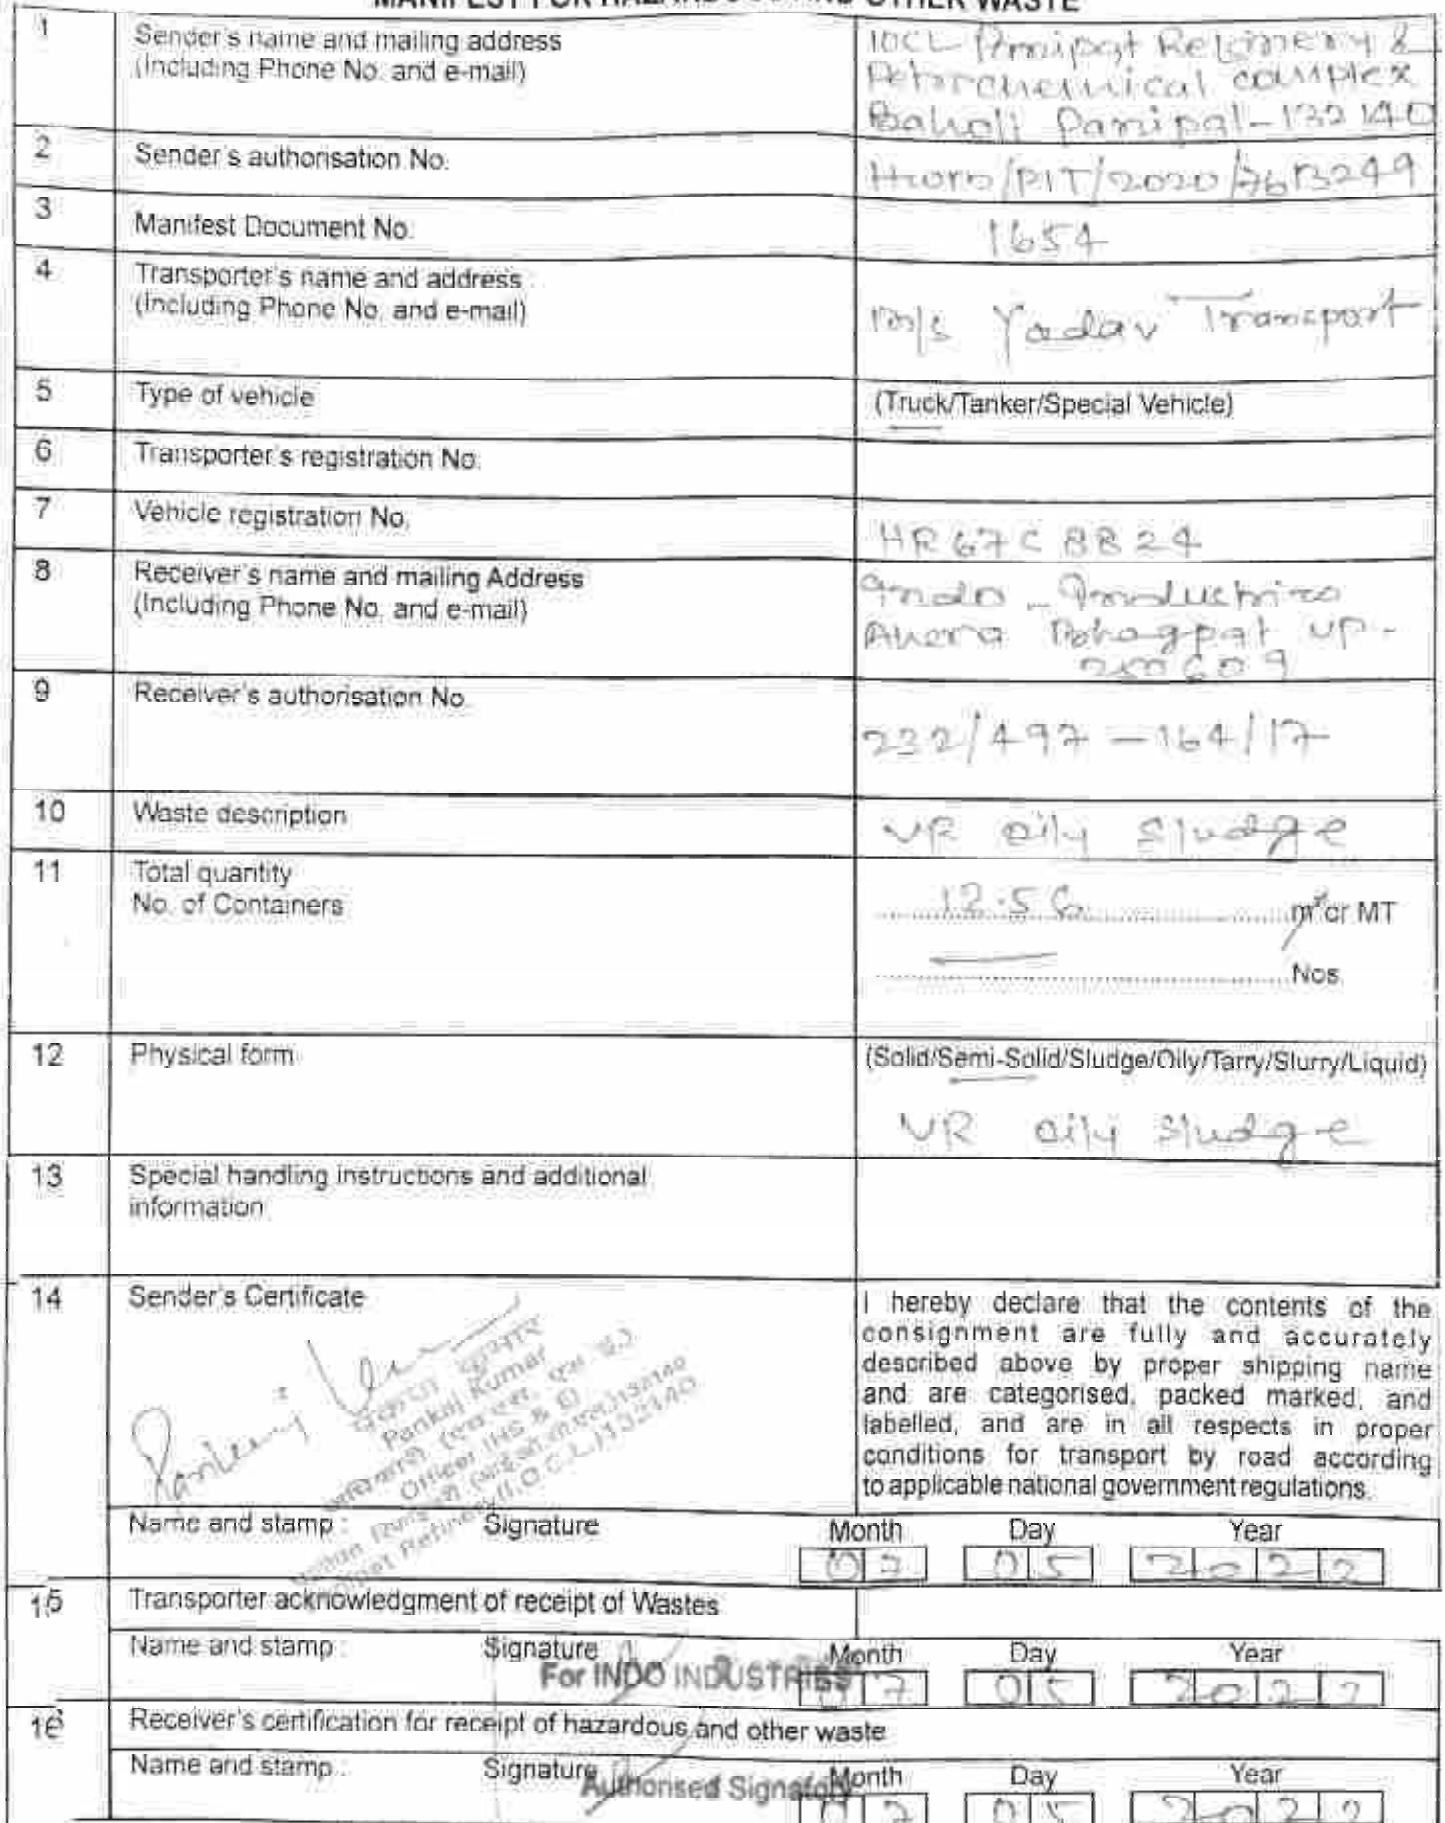 MANIFEST FOR HAZARDOUS AND OTHER WASTE
1 Sender's name and mailing address
(Including Phone No. and e-mail)
IOCL Panipat Refinery &
Petrochemical complex
Baholi Panipat-132140
2 Sender's authorisation No.
/PIT/2020/
3 Manifest Document No.
1654
4 Transporter's name and address :
(Including Phone No. and e-mail)
M/s Yadav Transport
5 Type of vehicle
(Truck/Tanker/Special Vehicle)
6 Transporter's registration No.
7 Vehicle registration No.
HR67C 8824
8 Receiver's name and mailing Address
(Including Phone No. and e-mail)
Indo
Ahera Bhagpat UP-
250609
9 Receiver's authorisation No.
232/497-164/17
10 Waste description
VR oily sludge
11 Total quantity
No. of Containers
12.56 m³ or MT
Nos.
12 Physical form
(Solid/Semi-Solid/Sludge/Oily/Tarry/Slurry/Liquid)
VR oily sludge
13 Special handling instructions and additional
information
14 Sender's Certificate
I hereby declare that the contents of the
consignment are fully and accurately
described above by proper shipping name
and are categorised, packed marked, and
labelled, and are in all respects in proper
conditions for transport by road according
to applicable national government regulations.
पंकज कुमार
Pankaj Kumar
Officer (HS & E)
Panipat Refinery (I.O.C.L.) 132140
Name and stamp : Signature Month Day Year
07 05 2022
15 Transporter acknowledgment of receipt of Wastes
Name and stamp : Signature Month Day Year
For INDO INDUSTRIES
07 05 2022
16 Receiver's certification for receipt of hazardous and other waste
Name and stamp : Signature Month Day Year
Authorised Signatory
07 05 2022